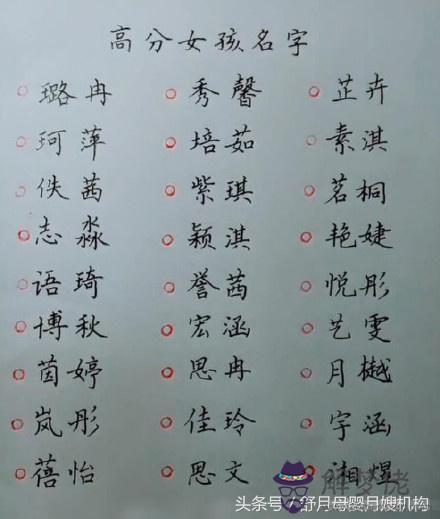 高分女孩名字
璐冉 秀馨 芷卉
珂萍 培茹 素淇
佚茜 紫琪 茗桐
志淼 颖淇 艳婕
语琦 誉茜 悦彤
博秋 宏涵 艺雯
茵婷 思冉 月樾
岚彤 佳玲 宇涵
蓓怡 思文 湘煜
头条号/舒月母婴月嫂机构